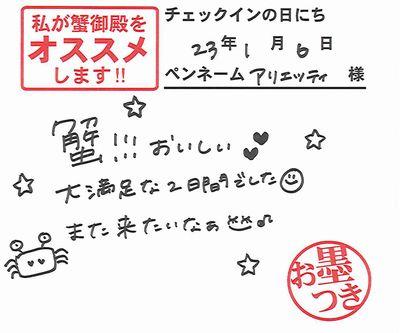 私が蟹御殿を
オススメ
します!!
チェックインの日にち
23年1月6日
ペンネーム アリエッティ 様
蟹!!! おいしい
大満足な2日間でした
また来たいなぁ
お墨つき